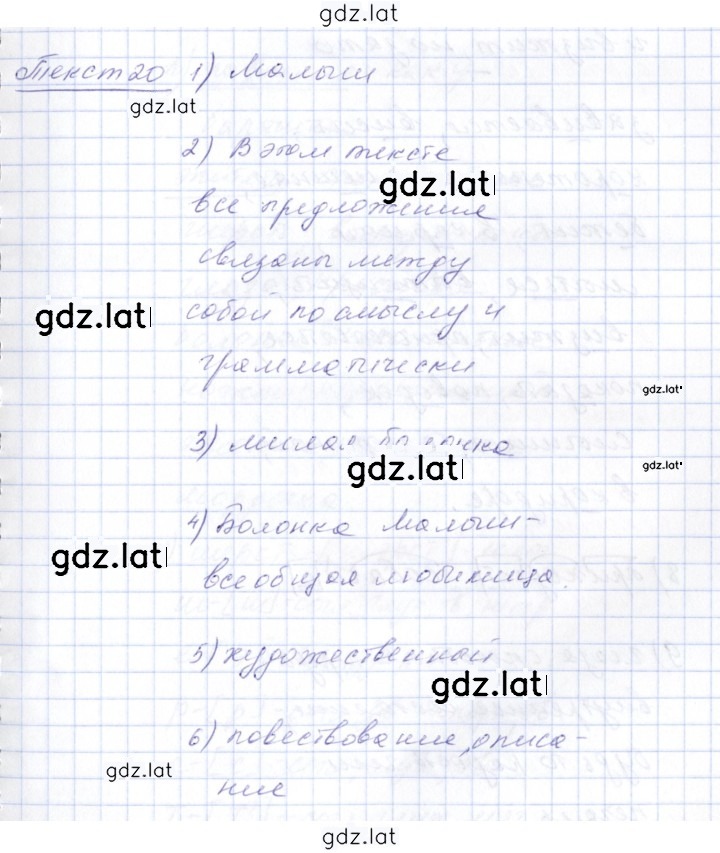 gdz.lat
Текст 20 1) Малыш
gdz.lat
2) В этом тексте
gdz.lat
все предложения
связаны между
gdz.lat
собой по смыслу и
грамматически
gdz.lat
3) милая болонка
gdz.lat
gdz.lat
4) Болонка Малыш-
gdz.lat
всеобщая любимица.
5) художественный
gdz.lat
6) повествование, описа-
gdz.lat
ние
gdz.lat